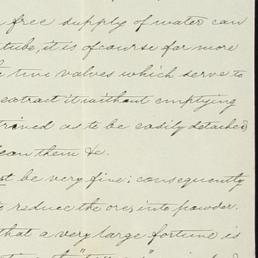 free supply of water can
tube, it is of course far more
two valves which serve to
extract it without emptying
as to be easily detached
clean them &c.
be very fine; consequently
to reduce the ores into powder.
that a very large fortune is